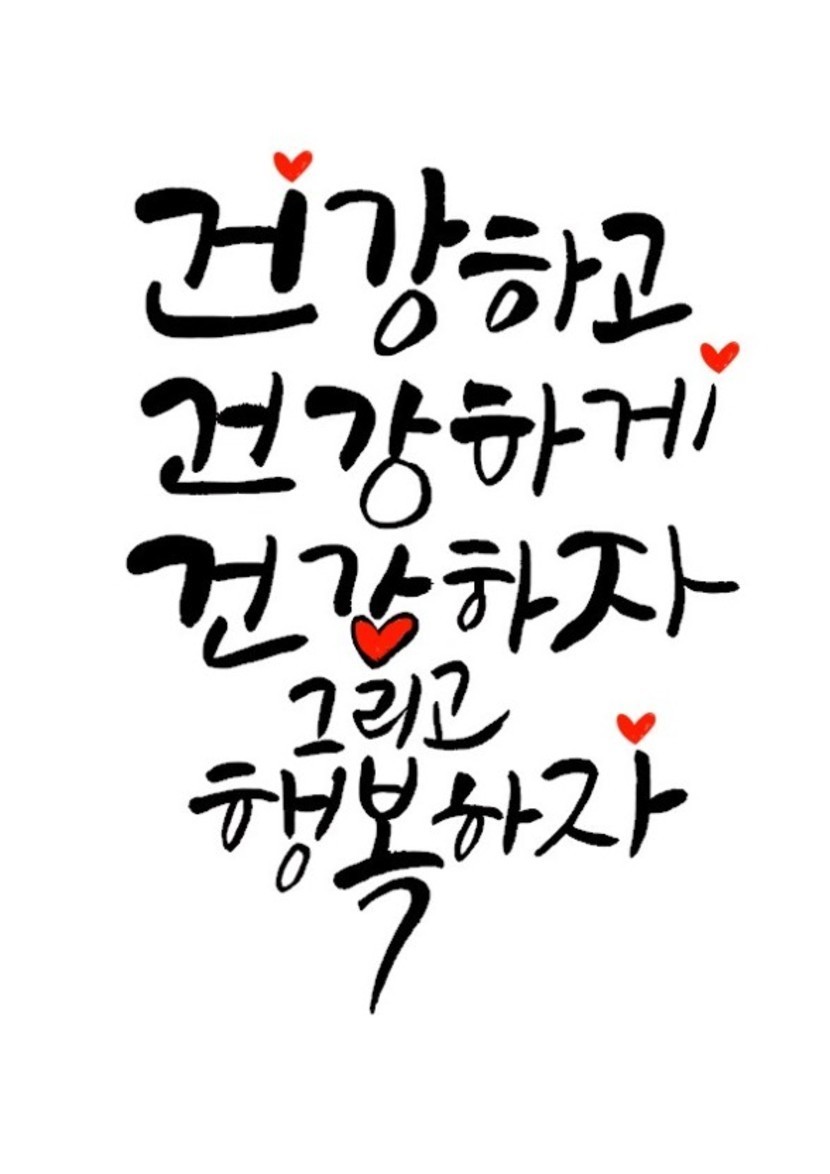 건강하고
건강하게
건강하자
그리고
행복하자